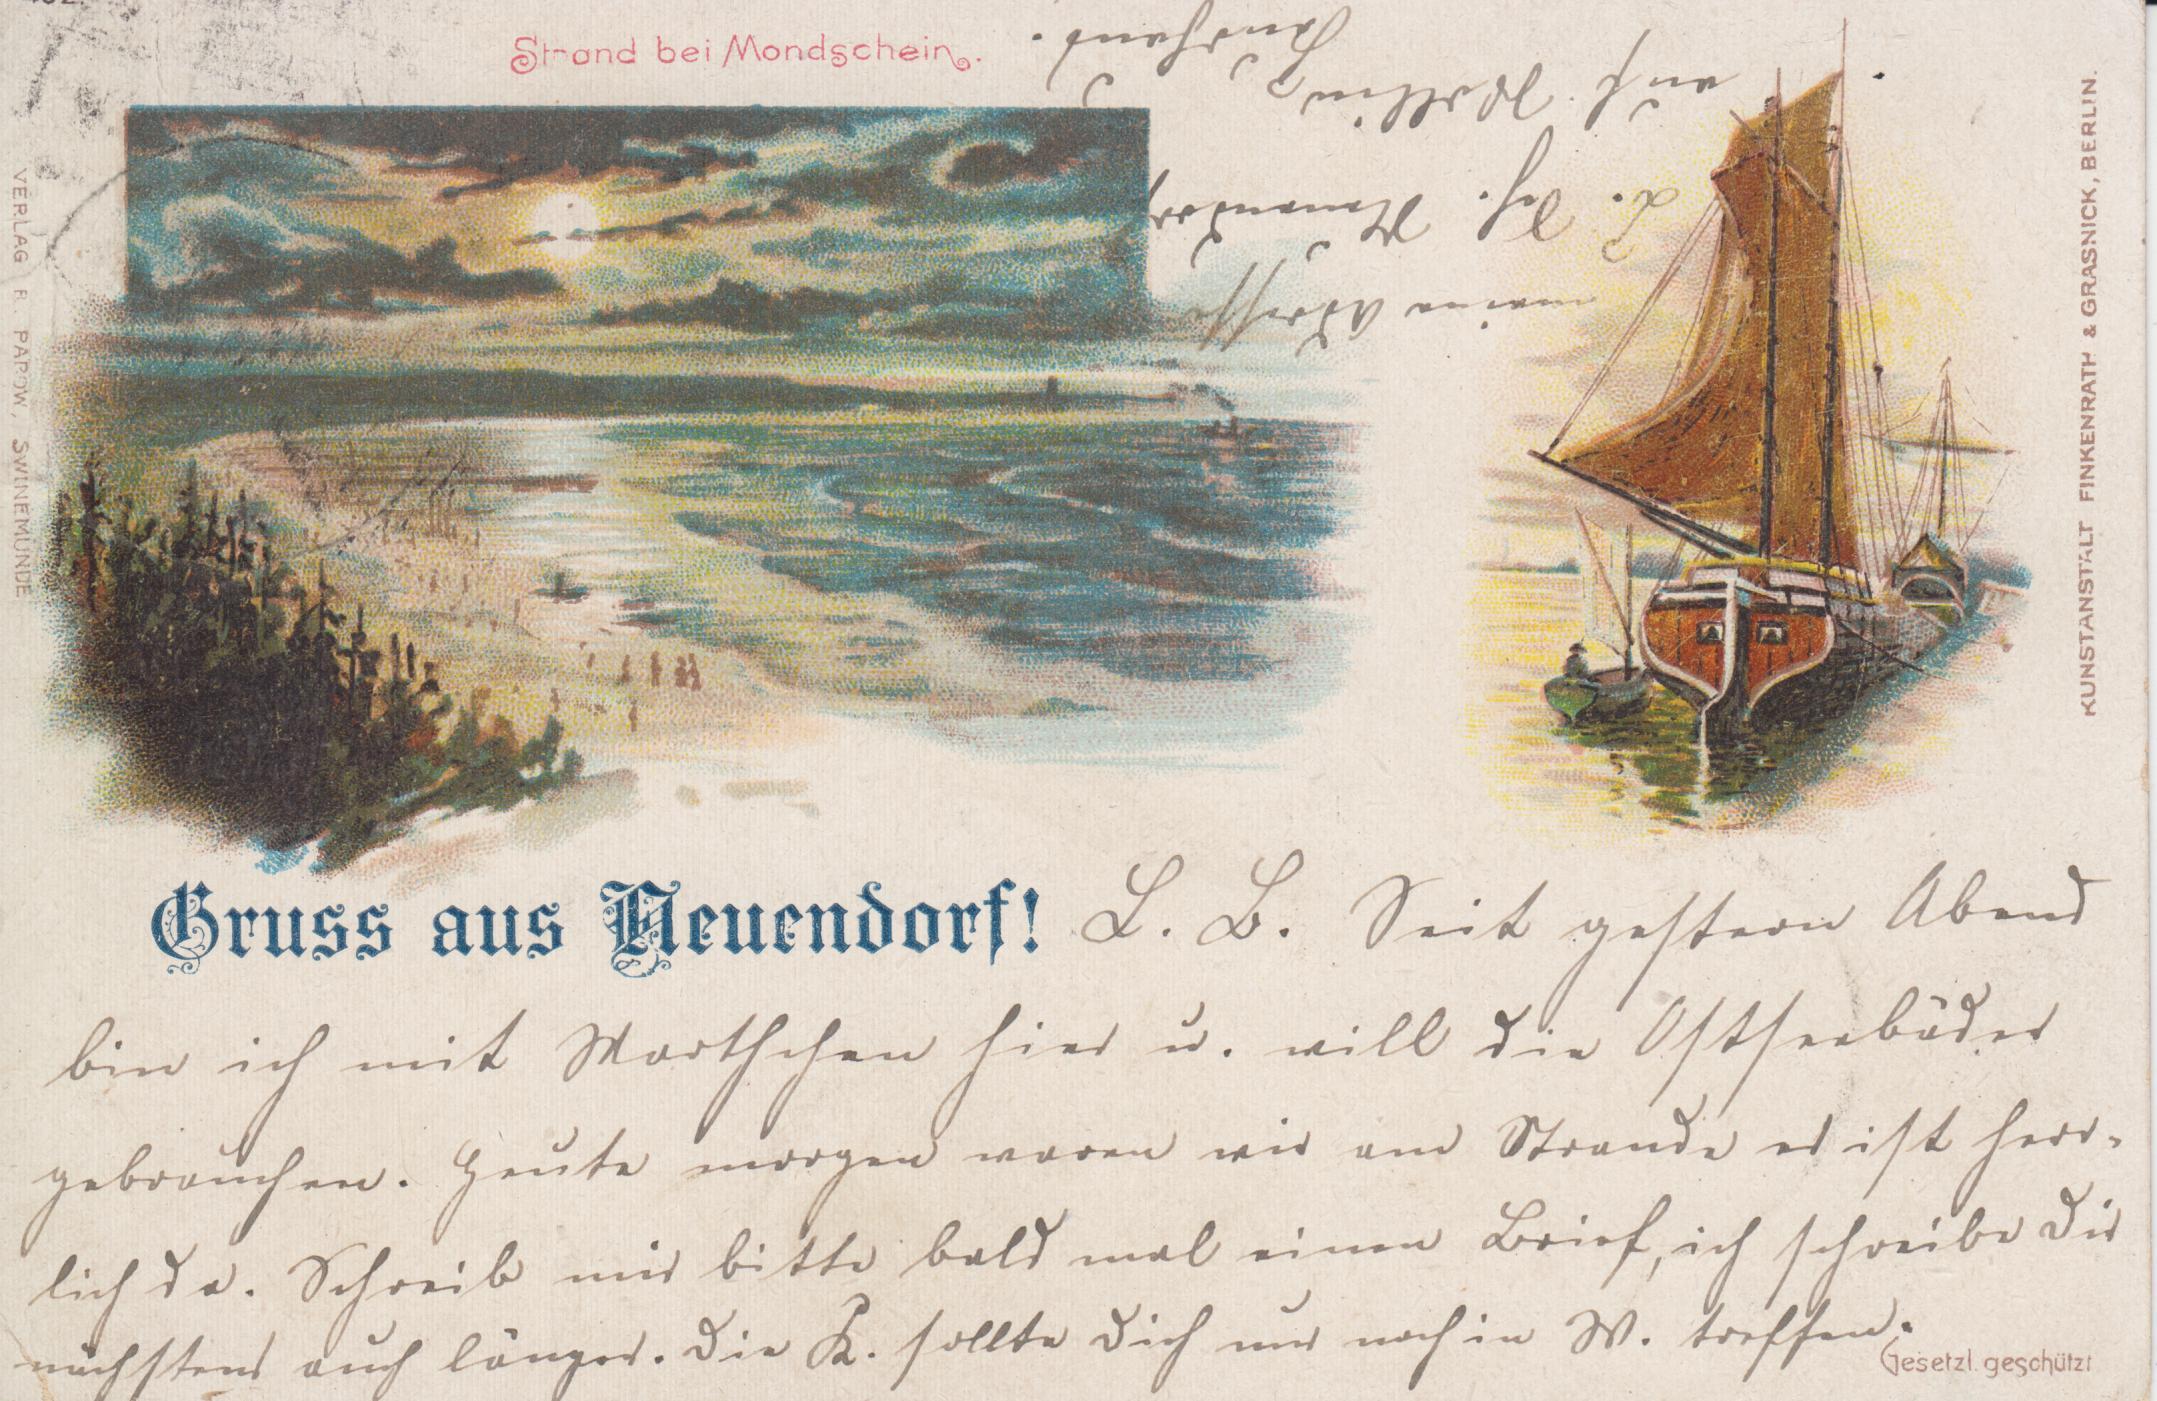 Strand bei Mondschein.
VERLAG R. PAPOW, SWINEMÜNDE
KUNSTANSTALT FINKENRATH & GRASNICK, BERLIN.
Gruss aus Neuendorf!
L. B. Seit gestern Abend
bin ich mit Marthchen hier u. will die Ostseebäder
gebrauchen. Heute morgen waren wir am Strande es ist herr-
lich da. Schreib mir bitte bald mal einen Brief, ich schreibe Dir
nächstens auch länger. Die K. sollte Dich nur noch in W. treffen.
Gesetzl. geschützt
meine Adresse
Neuendorf
auf Wollin